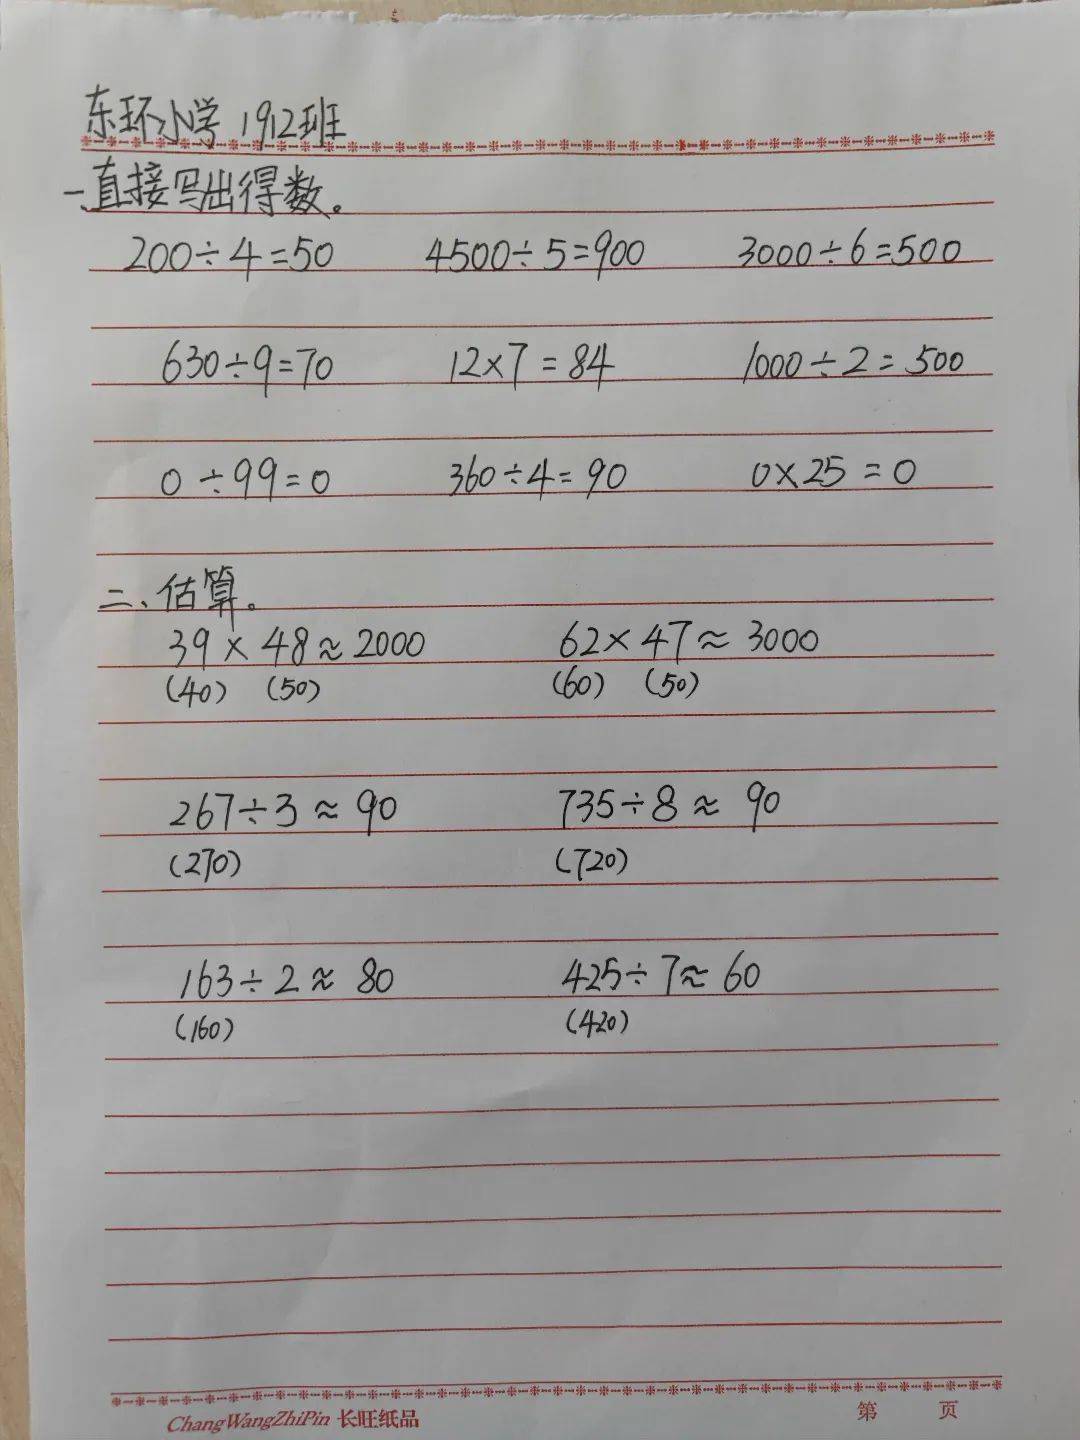 东环小学 1912班
一、直接写出得数。
200÷4=50 4500÷5=900 3000÷6=500
630÷9=70 12×7=84 1000÷2=500
0÷99=0 360÷4=90 0×25=0
二、估算。
39×48≈2000 62×47≈3000
(40) (50) (60) (50)
267÷3≈90 735÷8≈90
(270) (720)
163÷2≈80 425÷7≈60
(160) (420)
ChangWangZhiPin 长旺纸品 第 页